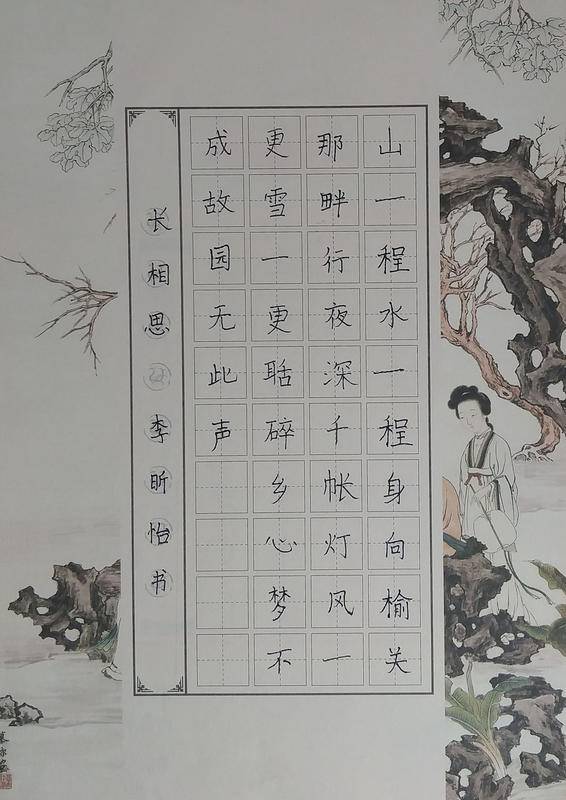 山一程水一程身向榆关
那畔行夜深千帐灯风一
更雪一更聒碎乡心梦不
成故园无此声
长相思 李昕怡书